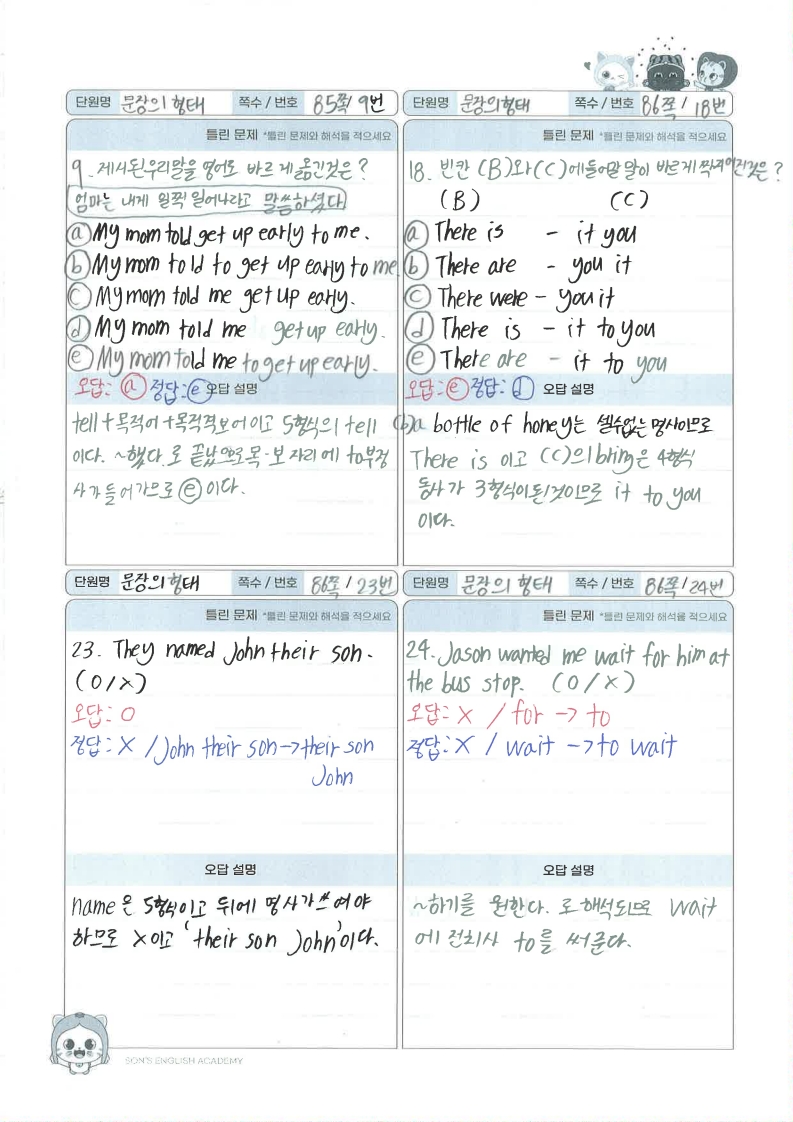 단원명 문장의 형태 쪽수 / 번호 85쪽/ 9번
틀린 문제 *틀린 문제와 해석을 적으세요
9. 제시된 우리말을 영어로 바르게 옮긴것은?
엄마는 내게 일찍 일어나라고 말씀하셨다
ⓐ My mom told get up early to me.
ⓑ My mom told to get up early to me.
ⓒ My mom told me get up early.
ⓓ My mom told me get up early.
ⓔ My mom told me to get up early.
오답: ⓐ 정답: ⓔ 오답 설명
tell + 목적어 + 목적격보어 이고 5형식의 tell
이다. ~했다.로 끝났으므로 목·보 자리에 to부정
사가 들어가므로 ⓔ이다.
단원명 문장의형태 쪽수 / 번호 86쪽 / 18번
틀린 문제 *틀린 문제와 해석을 적으세요
18. 빈칸 (B)와 (C)에 들어갈 말이 바르게 짝지어진것은?
(B) (C)
ⓐ There is - it you
ⓑ There are - you it
ⓒ There were - you it
ⓓ There is - it to you
ⓔ There are - it to you
오답: ⓔ 정답: ⓓ 오답 설명
(b)a bottle of honey는 셀수없는 명사이므로
There is 이고 (C)의 bring은 4형식
동사가 3형식이 된 것이므로 it to you
이다.
단원명 문장의 형태 쪽수 / 번호 86쪽 / 23번
틀린 문제 *틀린 문제와 해석을 적으세요
23. They named John their son.
(O/X)
오답: O
정답: X /John their son->their son
John
오답 설명
name은 5형식이고 뒤에 명사가 쓰여야
하므로 X이고 'their son John'이다.
단원명 문장의 형태 쪽수 / 번호 86쪽/24번
틀린 문제 *틀린 문제와 해석을 적으세요
24. Jason wanted me wait for him at
the bus stop. (O/X)
오답: X / for -> to
정답: X / wait -> to wait
오답 설명
~하기를 원한다. 로 해석되므로 wait
에 전치사 to를 써 준다.
SON'S ENGLISH ACADEMY